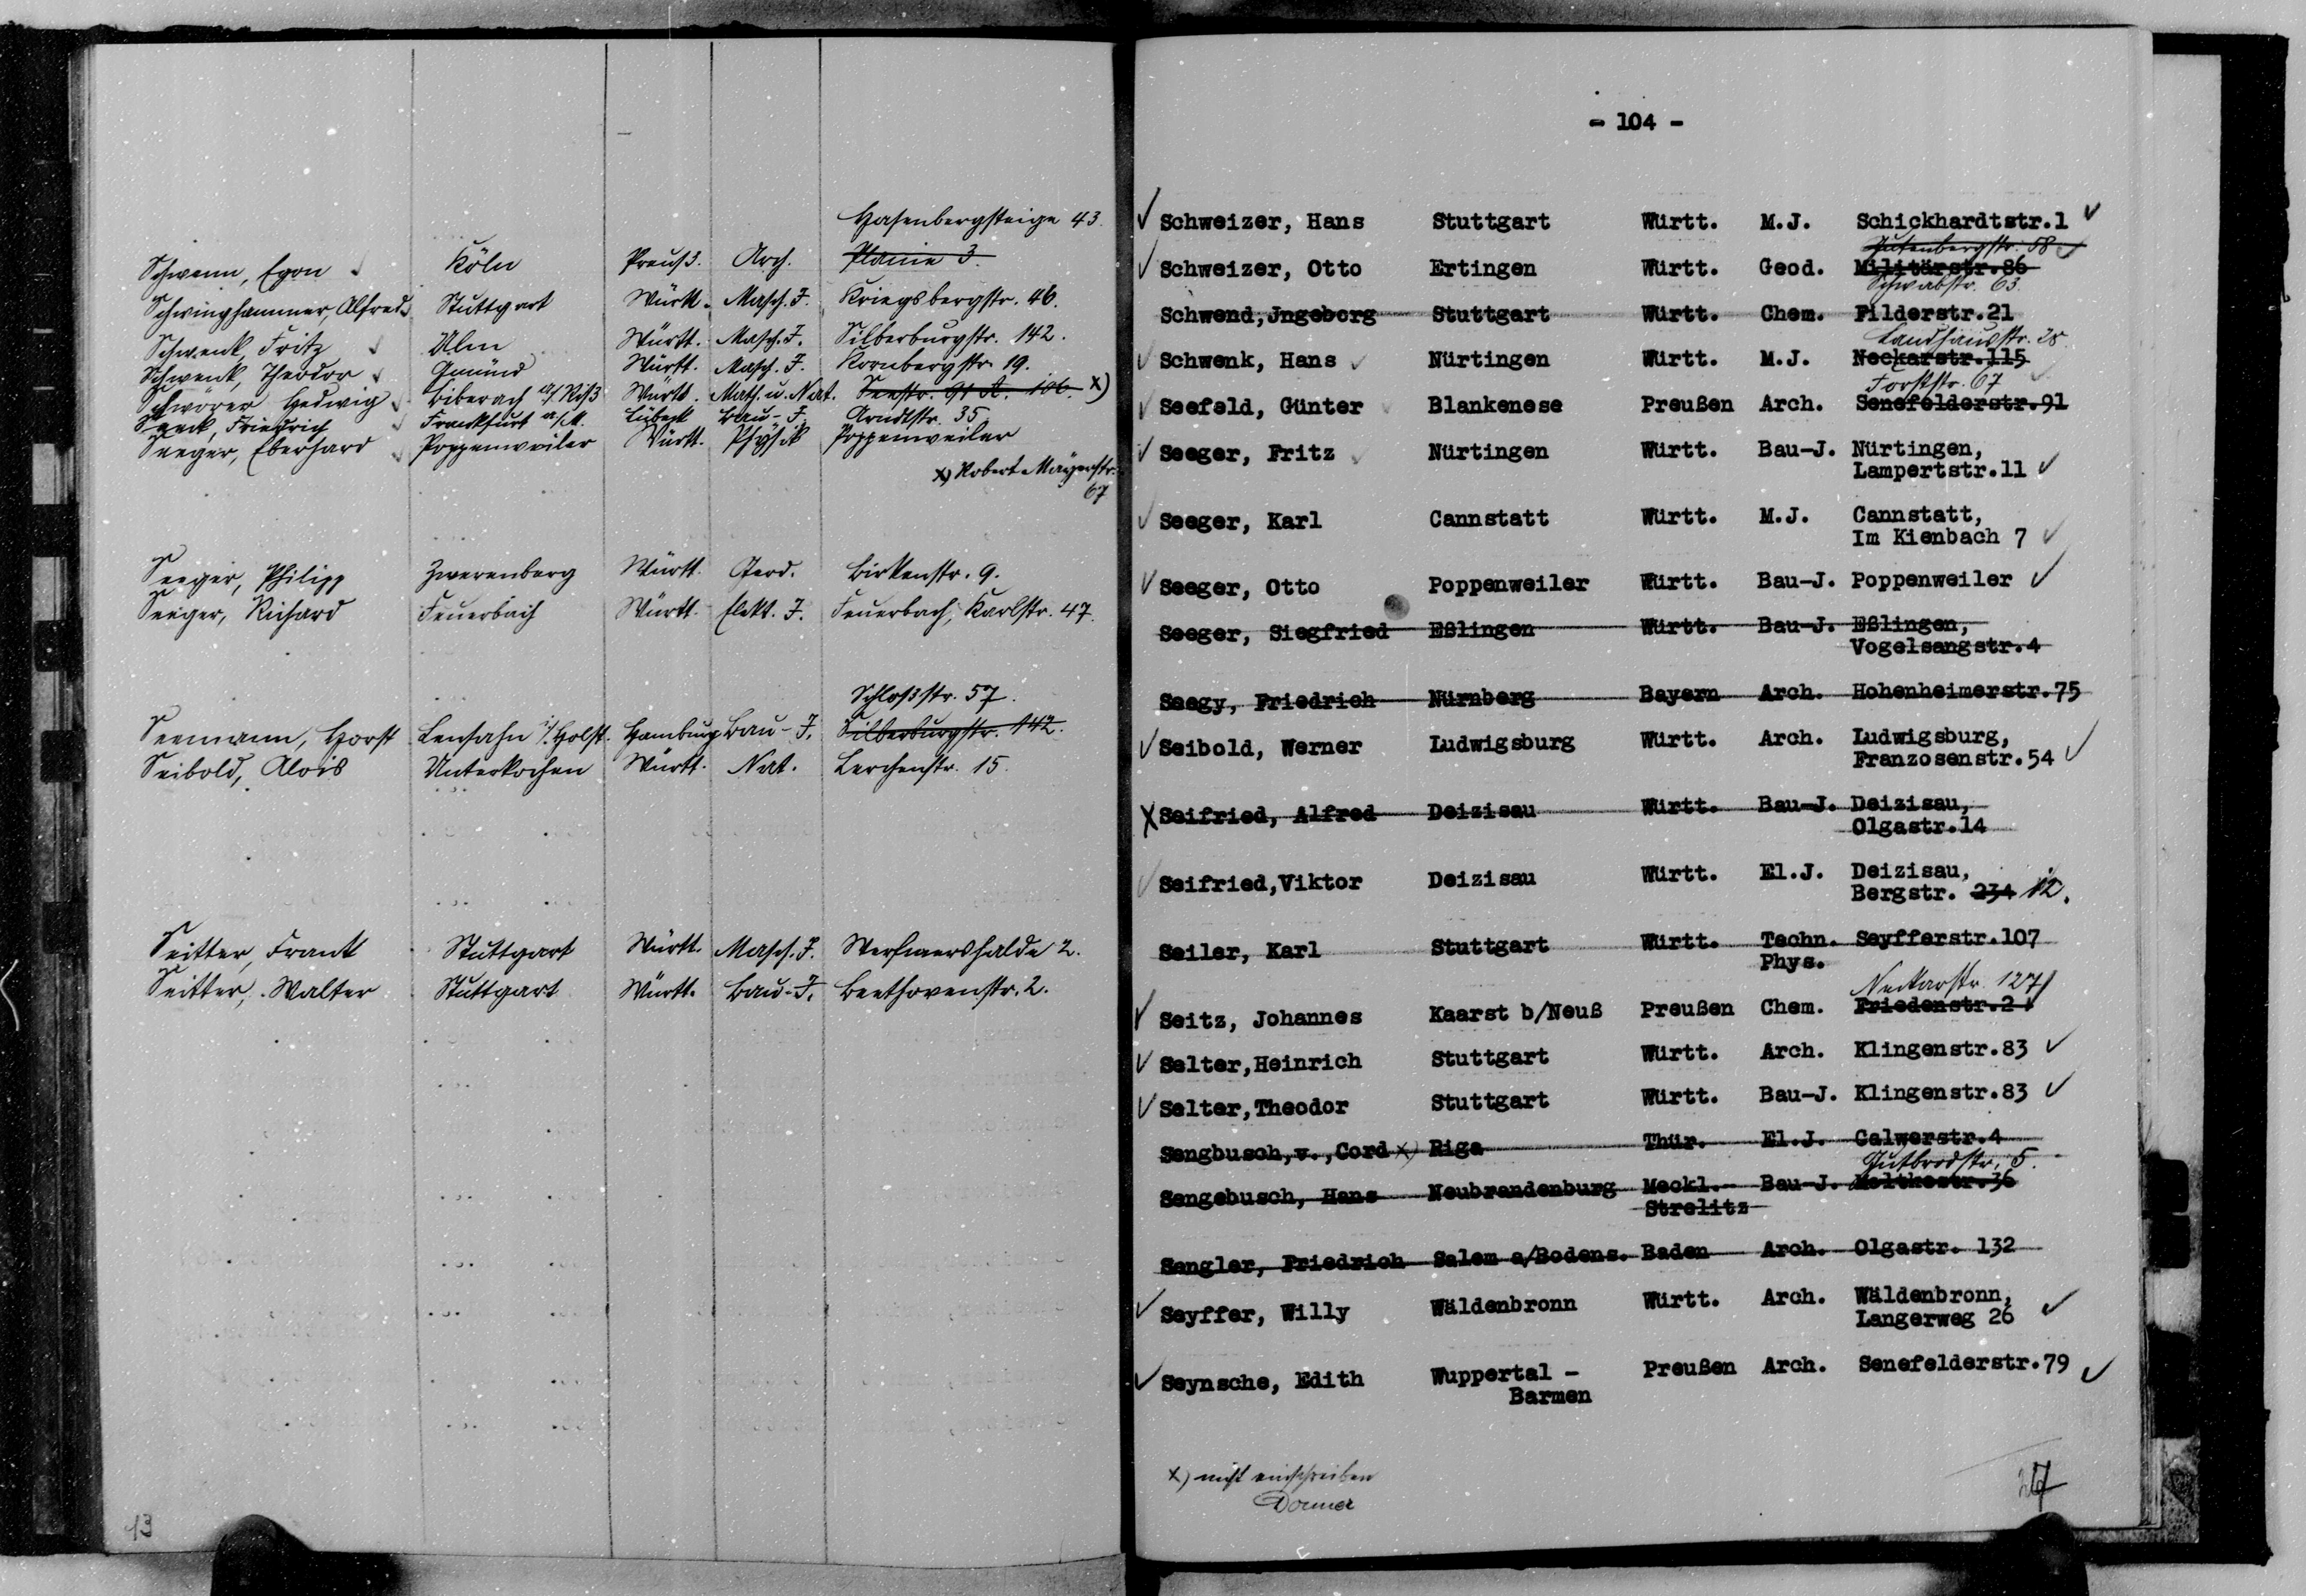 Hasenbergsteige 43.
Schwenn, Egon Köln Preuß. Arch. Planie 3.
Schwinghammer, Alfred Stuttgart Württ. Masch. J. Kriegsbergstr. 46.
Schwenk, Fritz Ulm Württ. Masch. J. Silberburgstr. 142.
Schwenk, Theodor Gmünd Württ. Masch. J. Kornbergstr. 19.
Schwörer Hedwig Biberach a/Riß Württ. Math. u. Nat. Seestr. 91 A. 106. x)
Friedrich Frankfurt a/M. Lübeck Bau-J. Arndtstr. 35
Seeger, Eberhard Poppenweiler Württ. Physik Poppenweiler
x) Robert-Mayerstr.
67
Seeger, Philipp Zwerenberg Württ. Geod. Birkenstr. 9.
Seeger, Richard Feuerbach Württ. Elekt. J. Feuerbach, Karlstr. 47.
Schloßstr. 57.
Seemann, Horst Lensahn i/Holst. Hamburg Bau-J. Silberburgstr. 142.
Seibold, Alois Unterkochen Württ. Nat. Lerchenstr. 15.
Seitter, Frank Stuttgart Württ. Masch. J. Werfmershalde 2.
Seitter, Walter Stuttgart Württ. Bau-J. Beethovenstr. 2.
13
- 104 -
Schweizer, Hans Stuttgart Württ. M.J. Schickhardtstr.1
Gutenbergstr. 58
Schweizer, Otto Ertingen Württ. Geod. Militärstr.86
Schwabstr. 63.
Schwend, Jngeborg Stuttgart Württ. Chem. Filderstr.21
Landhausstr. 28.
Schwenk, Hans Nürtingen Württ. M.J. Neckarstr.115
Forststr. 67
Seefeld, Günter Blankenese Preußen Arch. Senefelderstr.91
Seeger, Fritz Nürtingen Württ. Bau-J. Nürtingen,
Lampertstr.11
Seeger, Karl Cannstatt Württ. M.J. Cannstatt,
Im Kienbach 7
Seeger, Otto Poppenweiler Württ. Bau-J. Poppenweiler
Seeger, Siegfried Eßlingen Württ. Bau-J. Eßlingen,
Vogelsangstr.4
Seegy, Friedrich Nürnberg Bayern Arch. Hohenheimerstr.75
Seibold, Werner Ludwigsburg Württ. Arch. Ludwigsburg,
Franzosenstr.54
Seifried, Alfred Deizisau Württ. Bau-J. Deizisau,
Olgastr.14
Seifried,Viktor Deizisau Württ. El.J. Deizisau,
Bergstr. 234 12.
Seiler, Karl Stuttgart Württ. Techn. Seyfferstr.107
Phys.
Neckarstr. 127
Seitz, Johannes Kaarst b/Neuß Preußen Chem. Friedenstr.2
Selter,Heinrich Stuttgart Württ. Arch. Klingenstr.83
Selter,Theodor Stuttgart Württ. Bau-J. Klingenstr.83
Sengbusch,v.,Cord x) Riga Thür. El.J. Calwerstr.4
Gutbrodstr. 5.
Sengebusch, Hans Neubrandenburg Meckl.- Bau-J. Moltkestr.36
Strelitz
Sengler, Friedrich Salem a/Bodens. Baden Arch. Olgastr. 132
Seyffer, Willy Wäldenbronn Württ. Arch. Wäldenbronn,
Langerweg 26
Seynsche, Edith Wuppertal - Preußen Arch. Senefelderstr.79
Barmen
x) nicht einschreiben
Donner